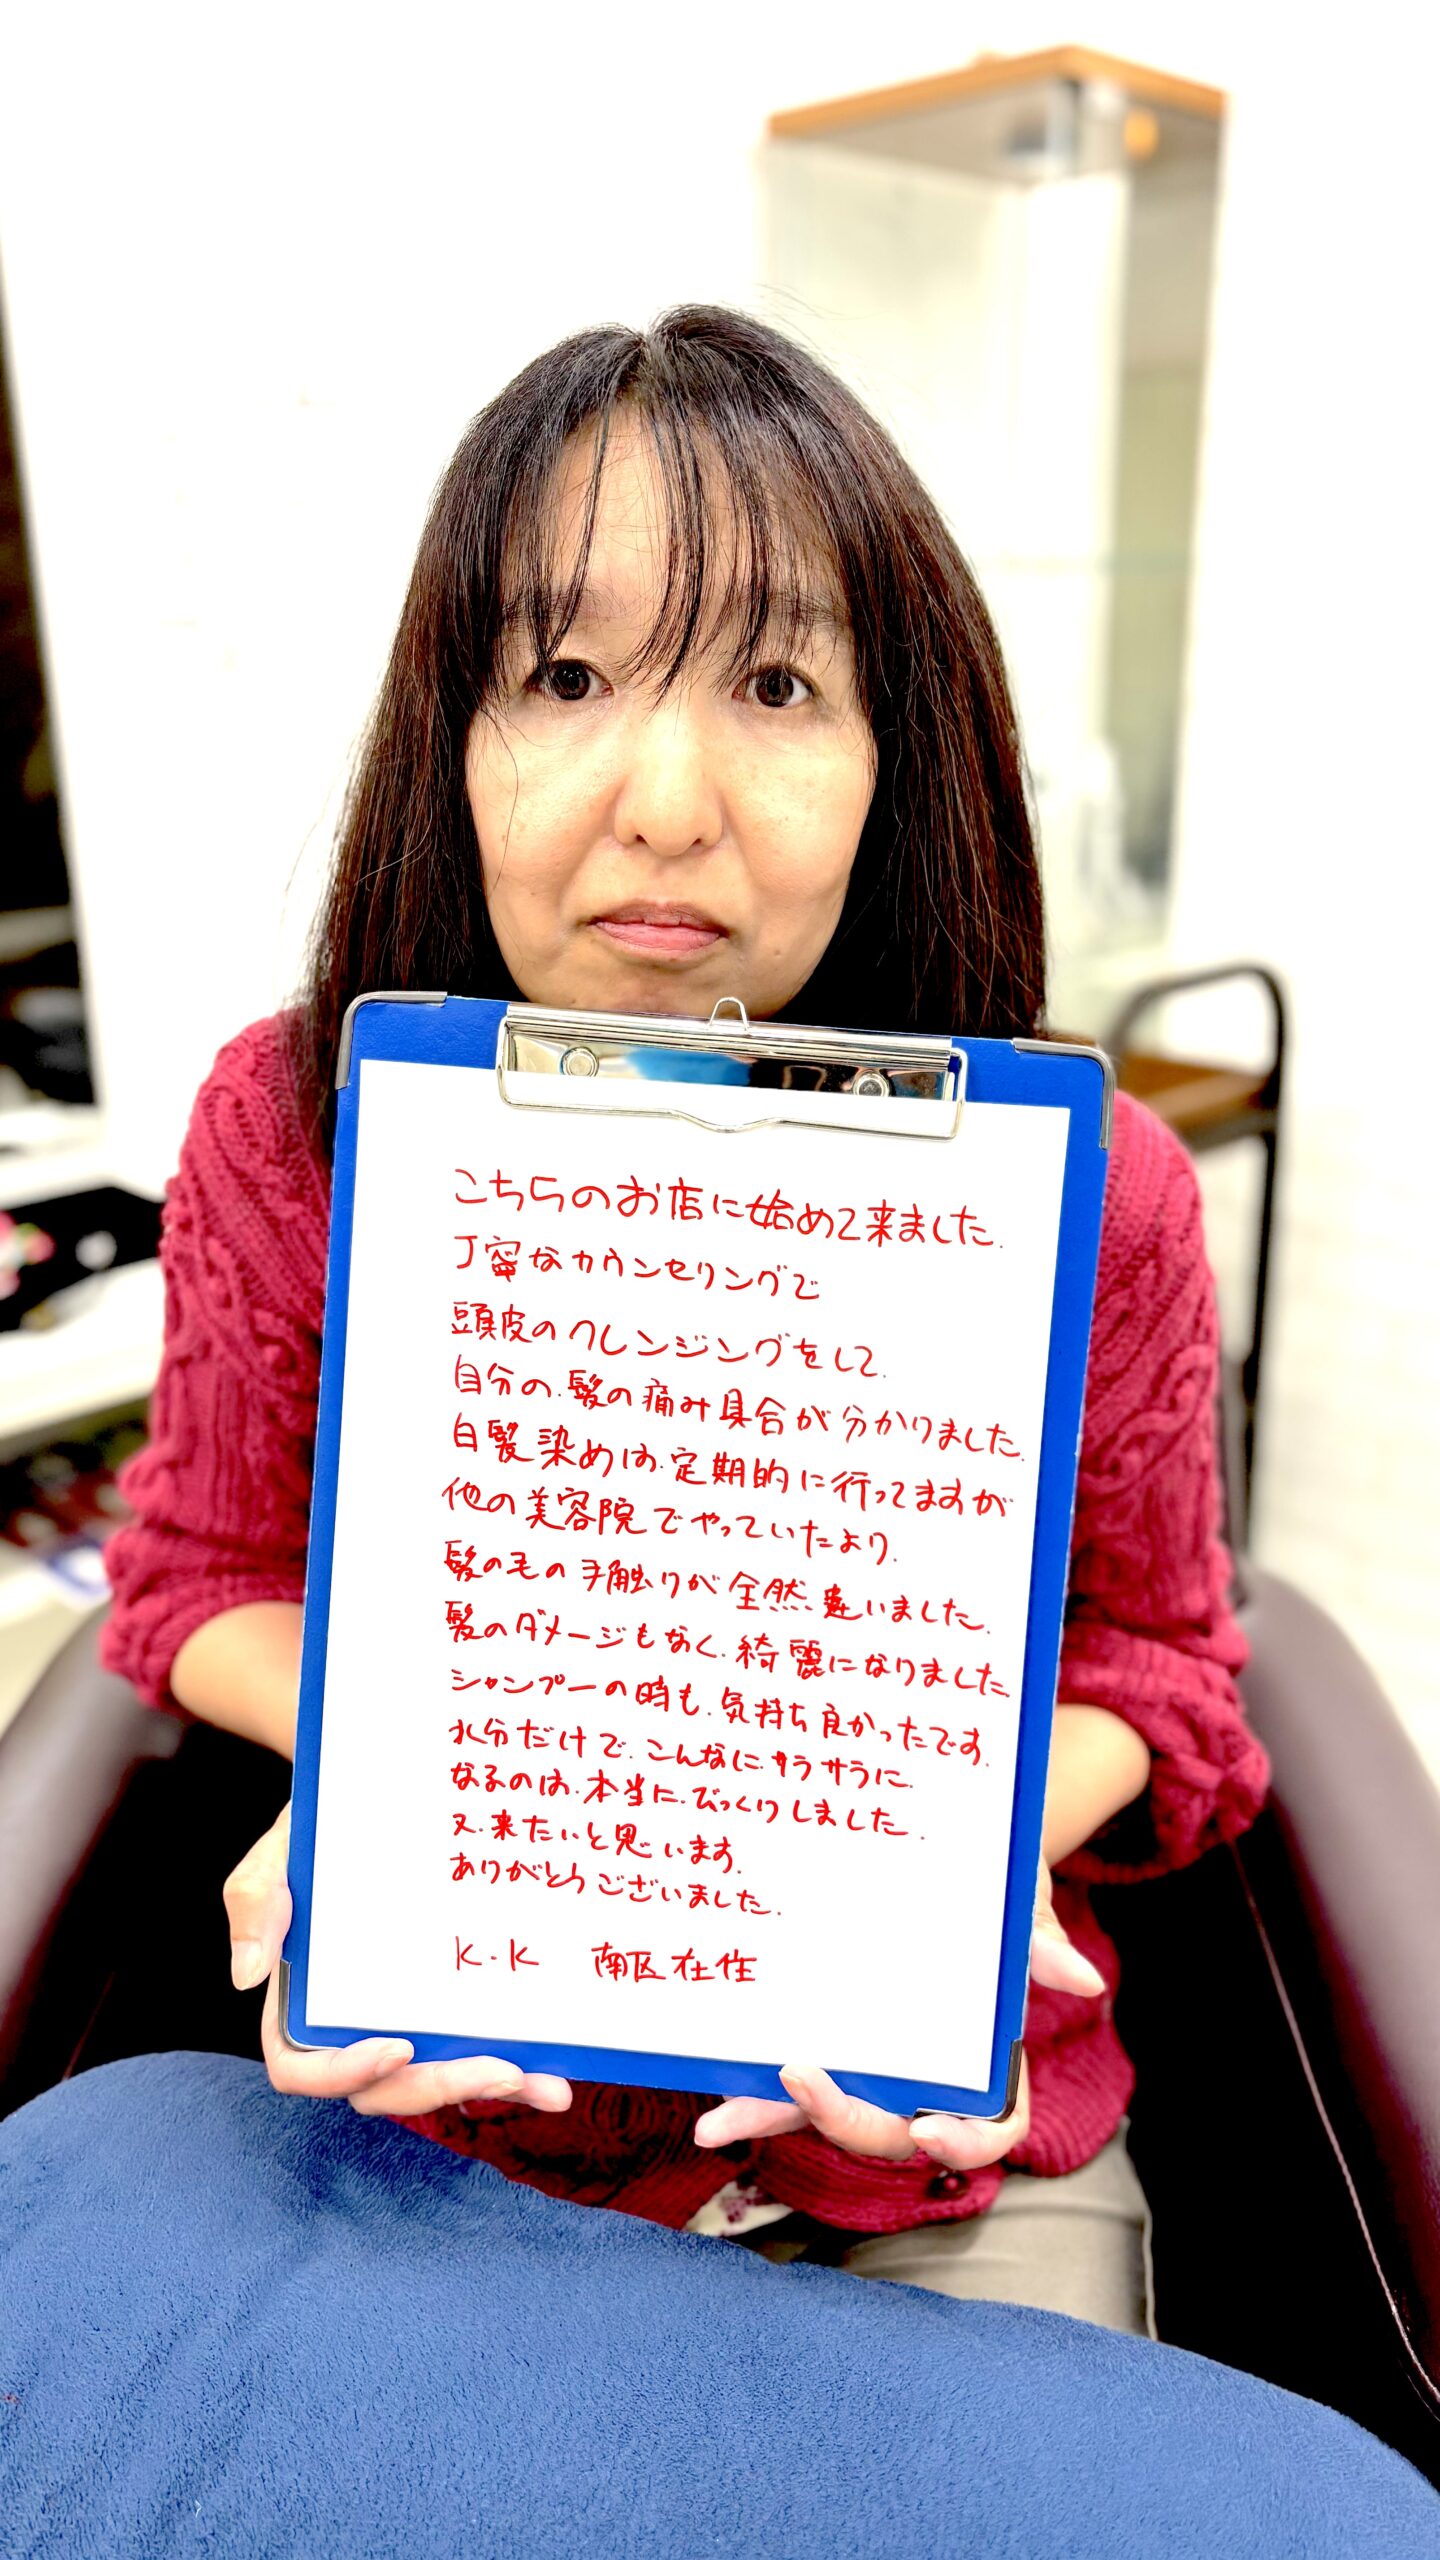 こちらのお店に始めて来ました.
丁寧なカウンセリングで
頭皮のクレンジングをして.
自分の.髪の痛み具合が分かりました.
白髪染めは.定期的に行ってますが
他の美容院でやっていたより.
髪の毛の手触りが全然違いました.
髪のダメージもなく.綺麗になりました.
シャンプーの時も.気持ち良かったです.
水分だけで.こんなに.サラサラに.
なるのは.本当に.びっくりしました.
又.来たいと思います.
ありがとうございました.
K.K 南区在住